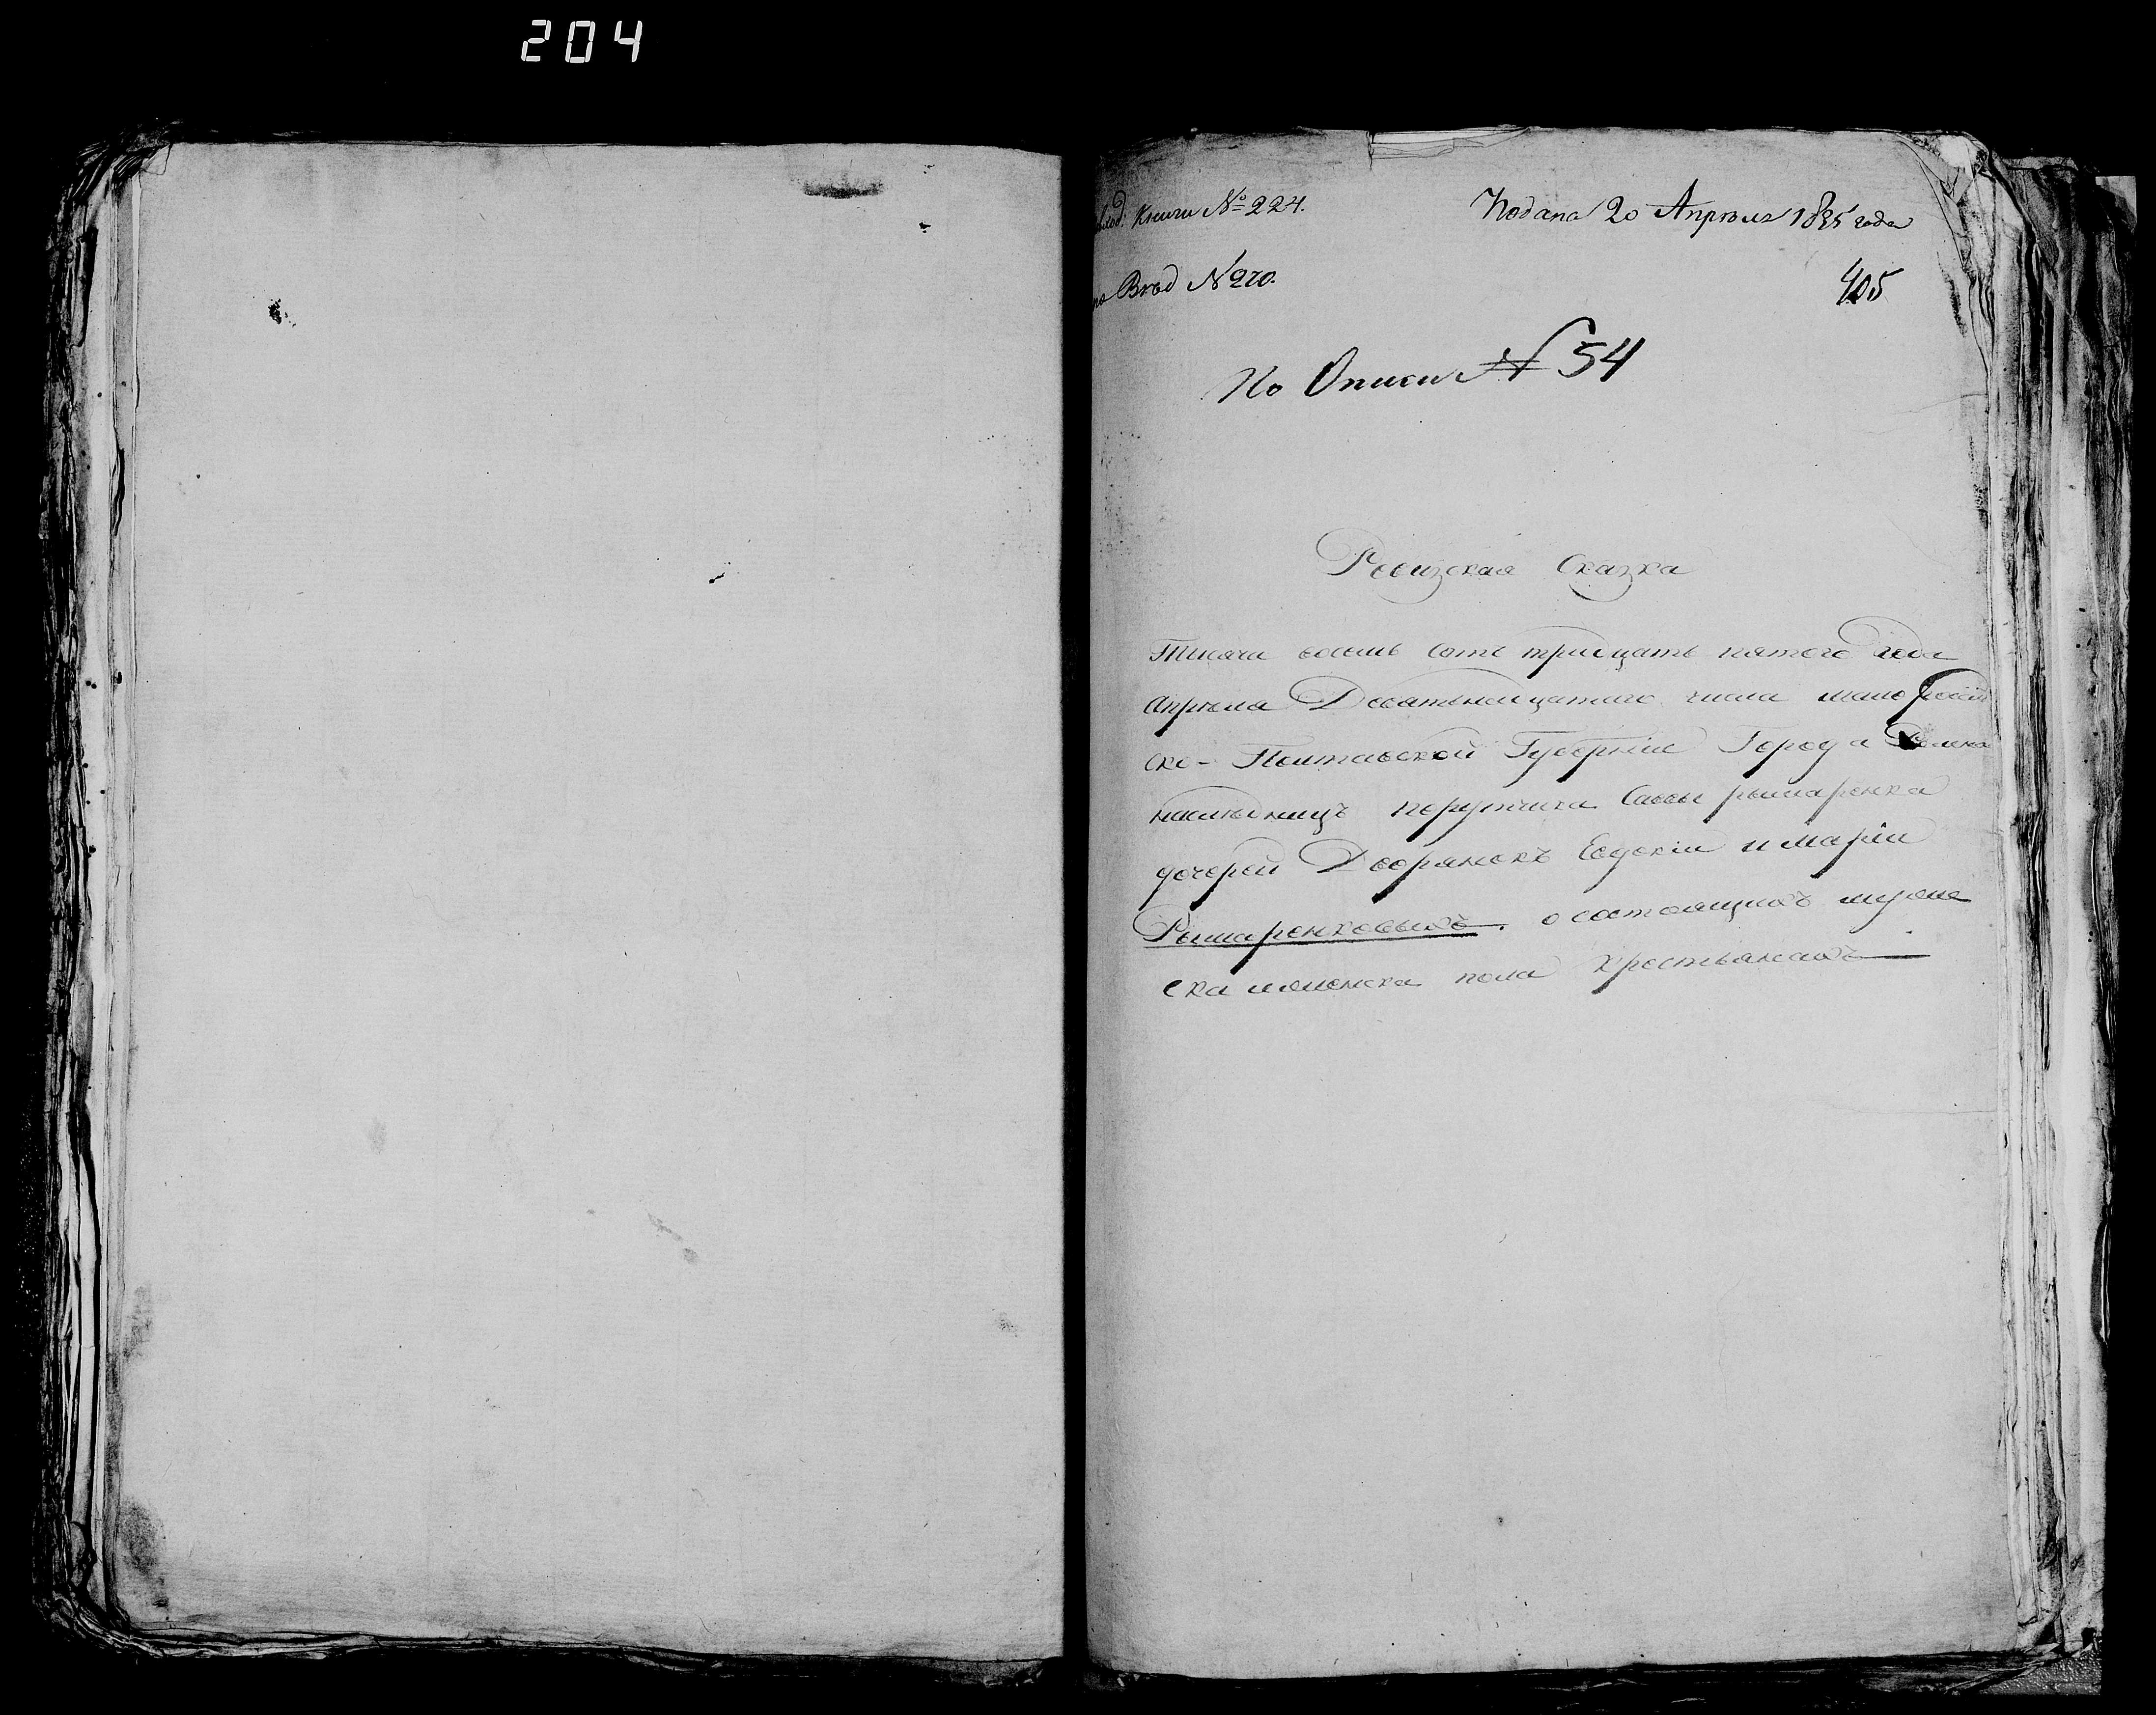 204
Книги № 224.
Подана 20 Апреля 1835 года
Вѣд № 270.
405
По Описи № 54
Ревизская Сказка
Тысяча восемь сотъ тридцать пятого года
апрѣля Девятнадцатого числа малороссій
ско - Полтавской Губерніи Города
наслѣдницъ порутчика Саввы рымаренка
дочерей Дворянокъ Евдокіи и маріи
Рымаренковыхъ. о состоящихъ мужеие
ска и женска пола крестьянахъ